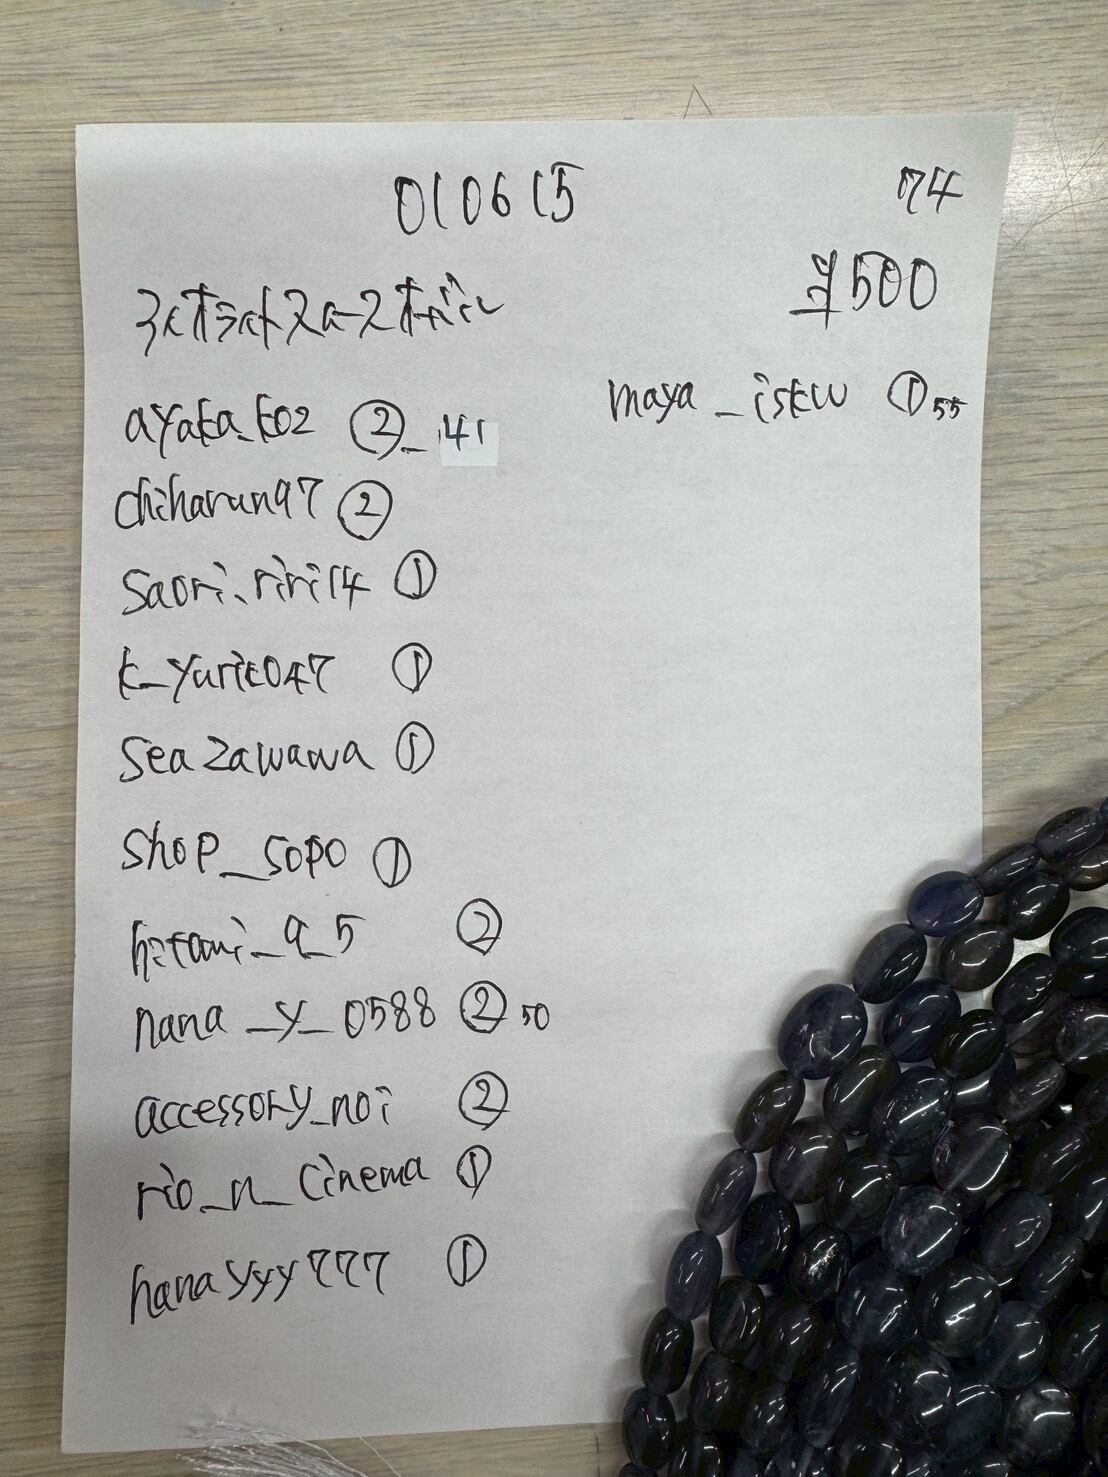 010615
74
アイオライトスムースオーバル
¥500
ayaka_k02 ②_41
chiharun97 ②
saori.riri14 ①
k_yurik047 ①
seazawawa ①
shop_sopo ①
hitomi_9_5 ②
nana_y_0588 ② 50
accessory_noi ②
rio_n_cinema ①
hanayyy777 ①
maya_iskw ① 55